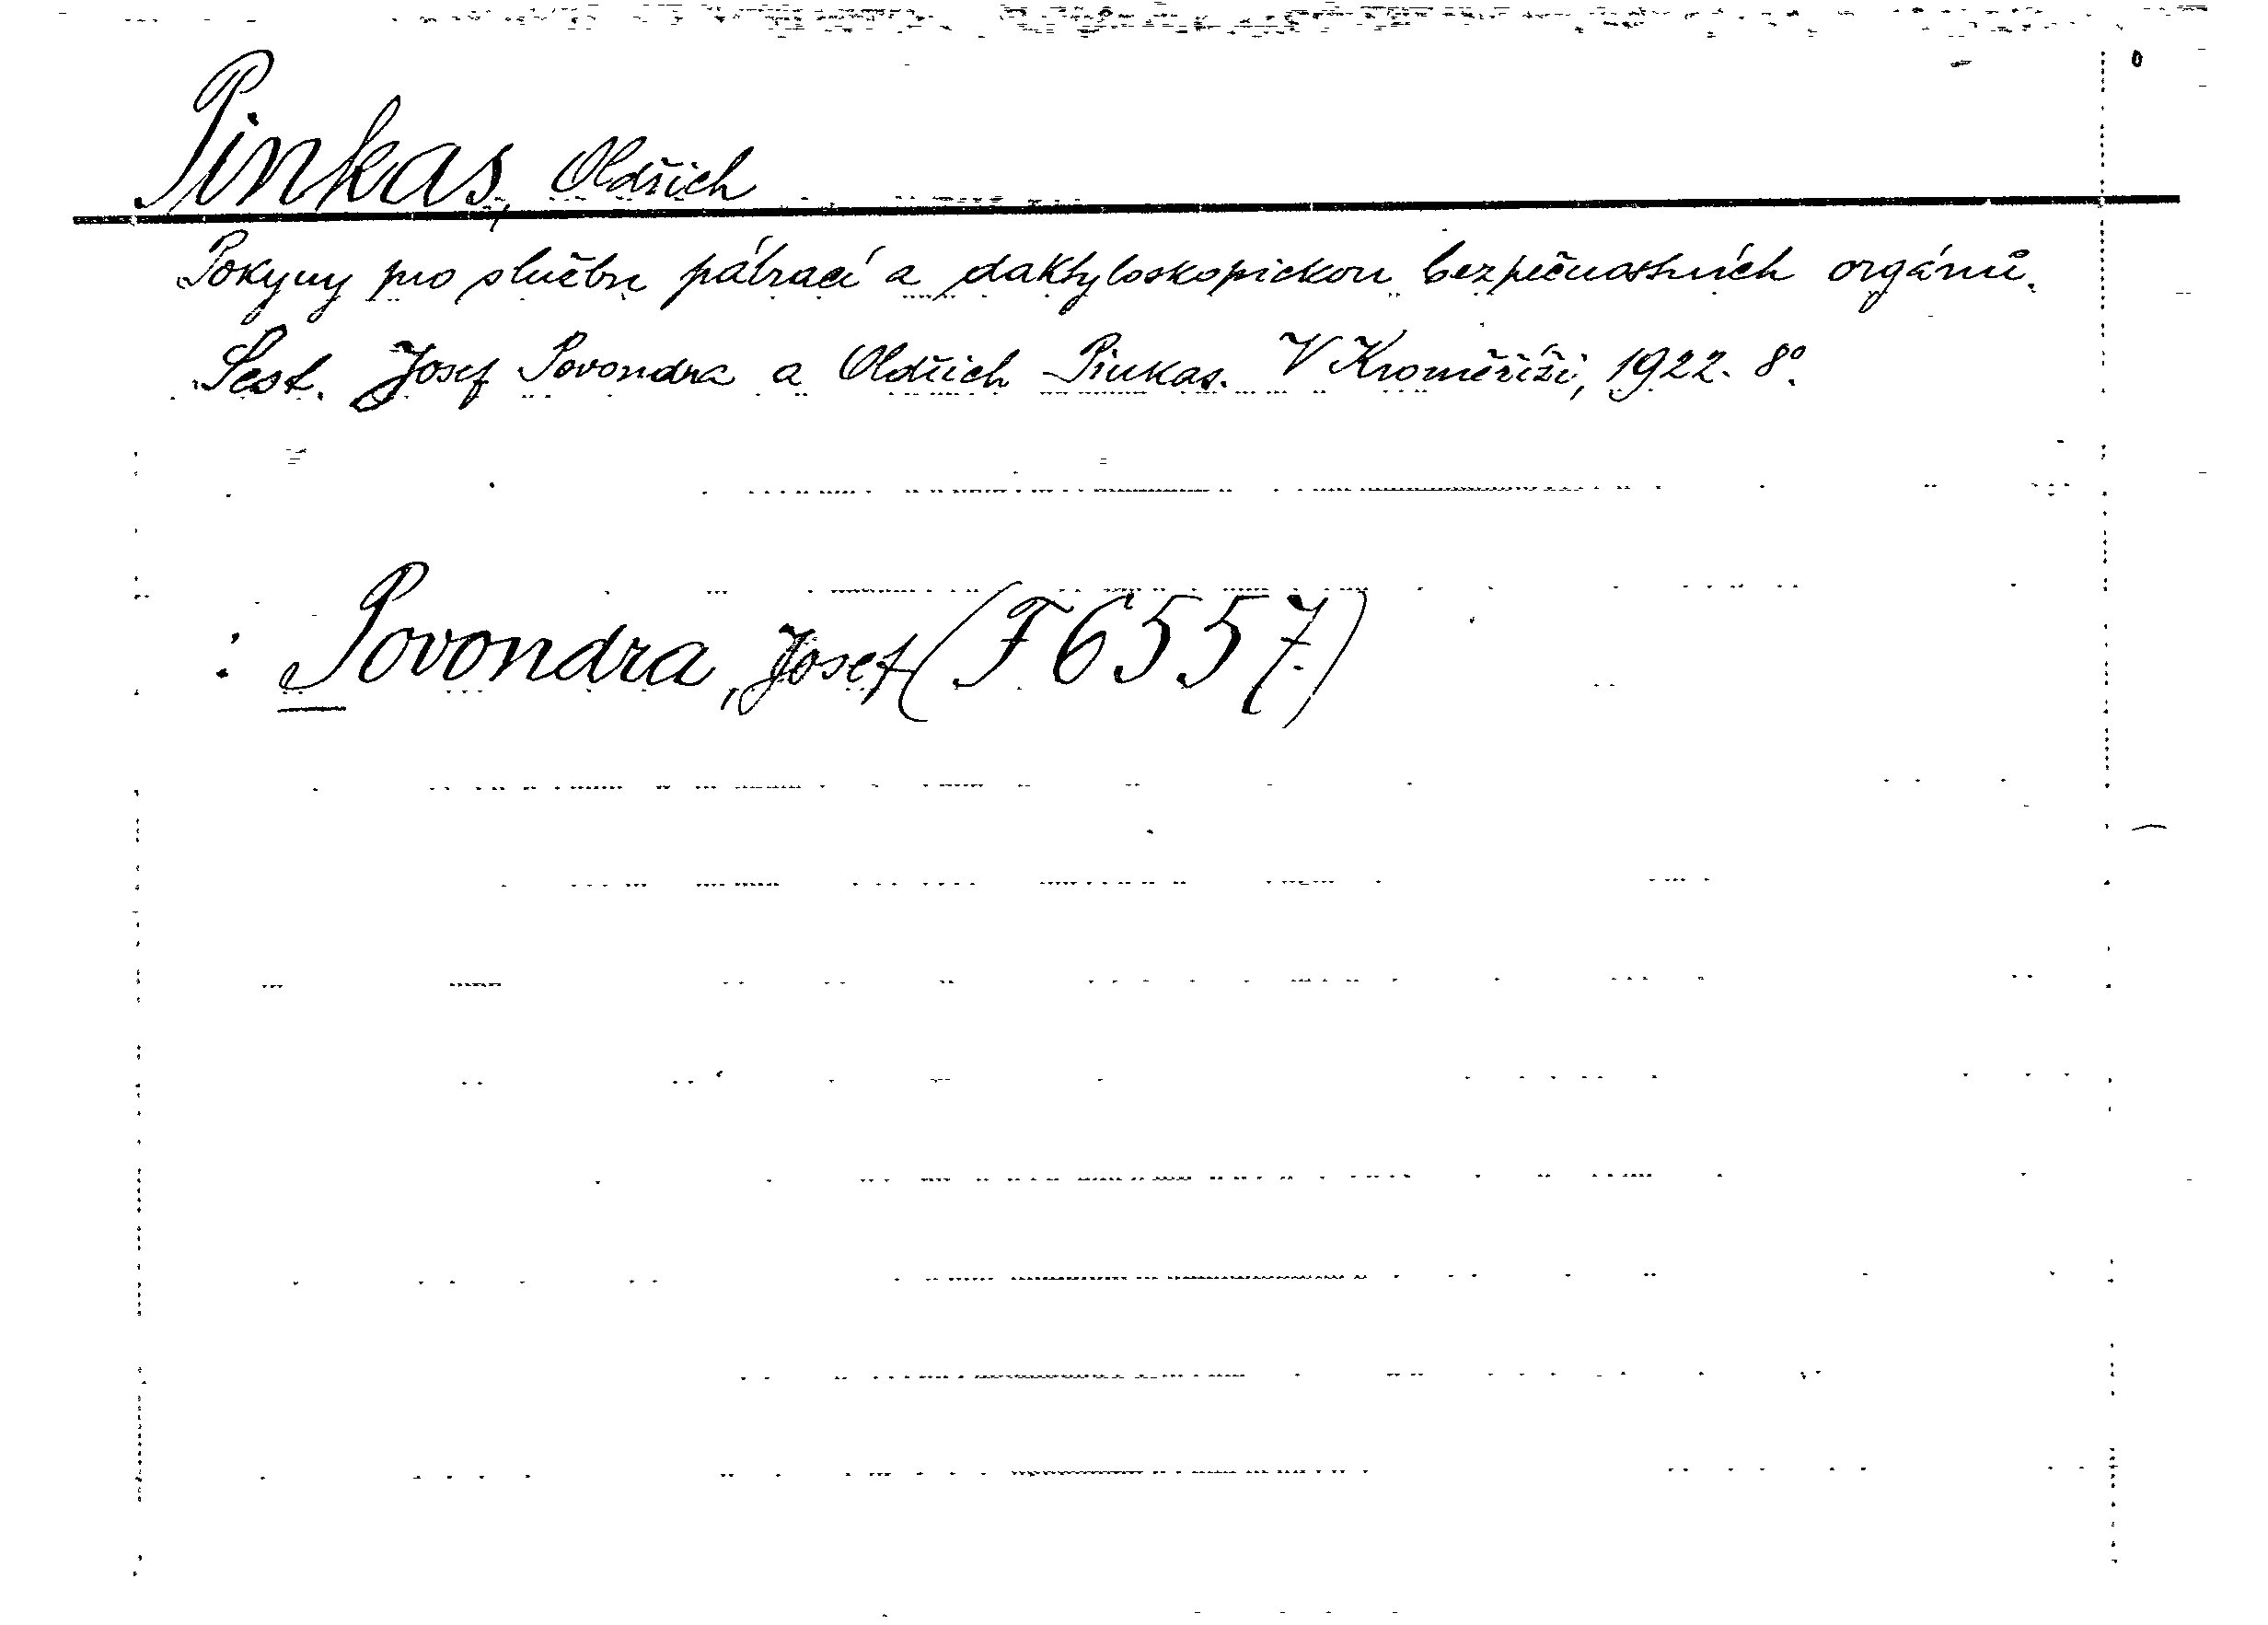 Pinkas, Oldřich
Pokyny pro službu pátrací a daktyloskopickou bezpečnostních orgánů.
Sest. Josef Povondra a Oldřich Pinkas. V Kroměříži, 1922. 8°.
: Povondra, Josef (F 6557)